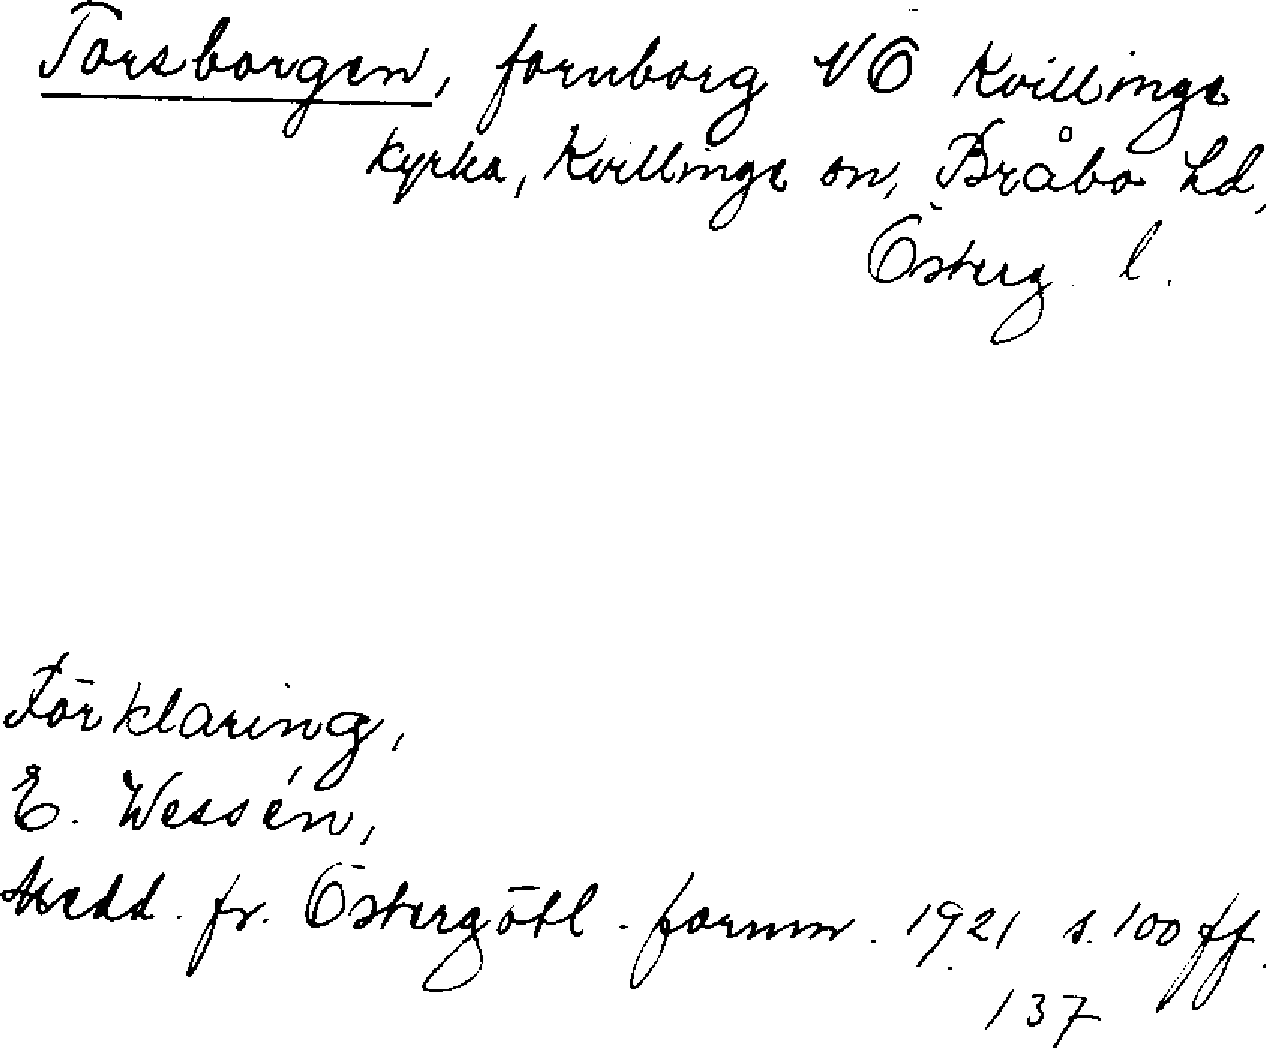 Torsborgen, fornborg NÖ Kvillinge
kyrka, Kvillinge sn, Bråbo hd,
Österg. l.
Förklaring,
E. Wessén,
Medd. fr. Östergötl. fornm. 1921 s. 100 ff.
137